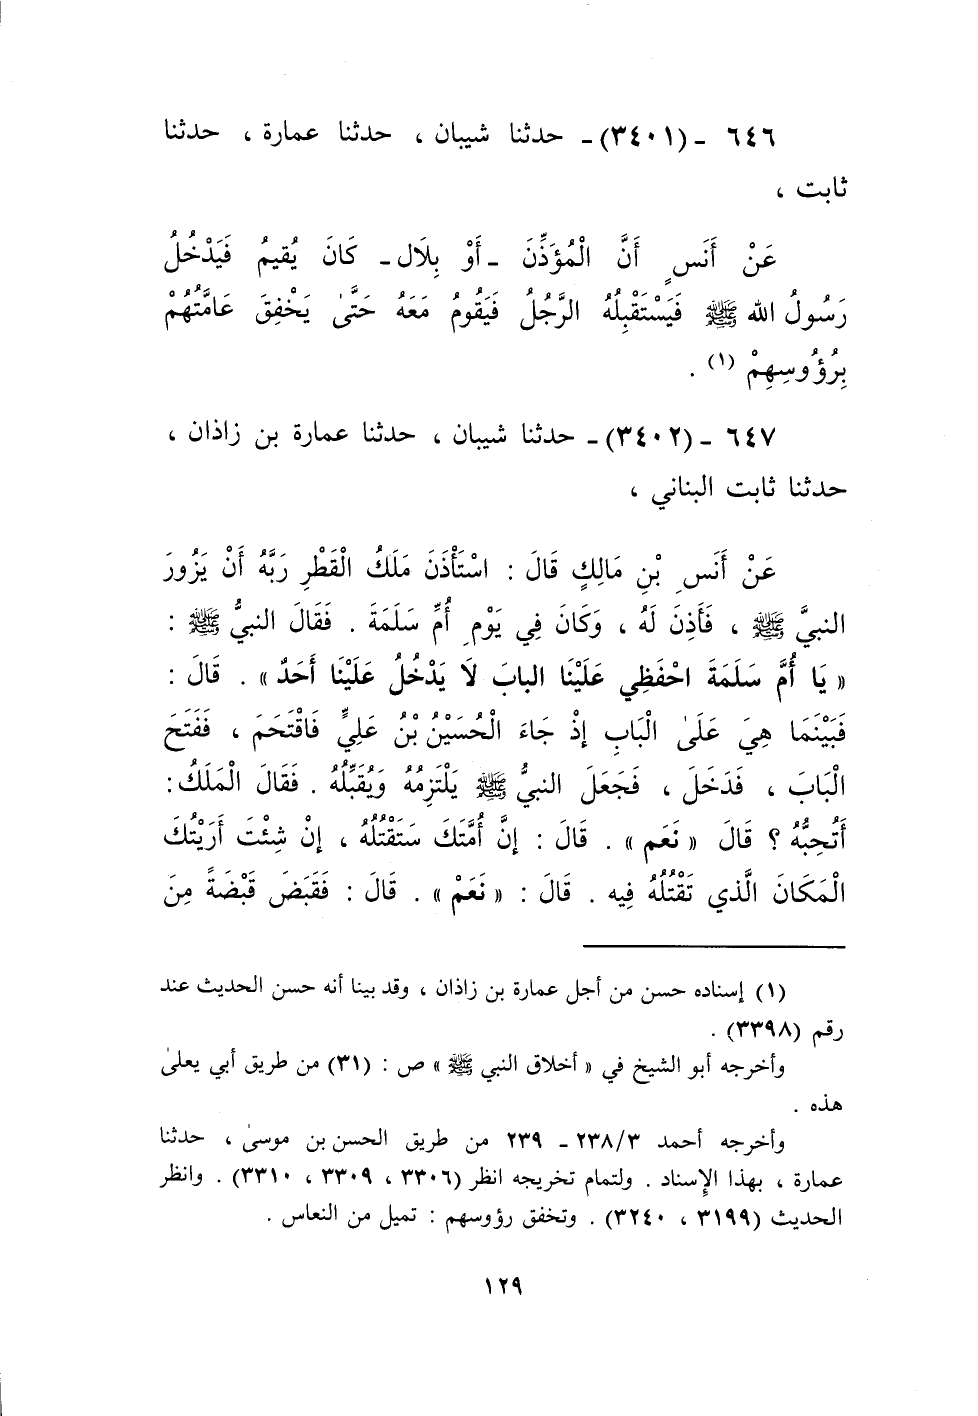 ٦٤٦ ـ (٣٤٠١)ـ حدثنا شيبان ، حدثنا عمارة ، حدثنا
ثابت ،
عَنْ أَنَسٍ أَنَّ الْمُؤَذِّنَ ـ أَوْ بِلَال ـ كَانَ يُقِيمُ فَيَدْخُلُ
رَسُولُ الله ﷺ فَيَسْتَقْبِلُهُ الرَّجُلُ فَيَقُومُ مَعَهُ حَتَّىٰ يَخْفِقَ عَامَّتُهُمْ
بِرُؤُوسِهِمْ (١) .
٦٤٧ ـ (٣٤٠٢)ـ حدثنا شيبان ، حدثنا عمارة بن زاذان ،
حدثنا ثابت البناني ،
عَنْ أَنَسِ بْنِ مَالِكٍ قَالَ : اسْتَأْذَنَ مَلَكُ الْقَطْرِ رَبَّهُ أَنْ يَزُورَ
النبيَّ ﷺ ، فَأَذِنَ لَهُ ، وَكَانَ فِي يَوْمِ أُمِّ سَلَمَةَ . فَقَالَ النبيُّ ﷺ :
« يَا أُمَّ سَلَمَةَ احْفَظِي عَلَيْنَا البابَ لَا يَدْخُلُ عَلَيْنَا أَحَدٌ» . قَالَ :
فَبَيْنَمَا هِيَ عَلَىٰ الْبَابِ إِذْ جَاءَ الْحُسَيْنُ بْنُ عَلِيٍّ فَاقْتَحَمَ ، فَفَتَحَ
الْبَابَ ، فَدَخَلَ ، فَجَعَلَ النبيُّ ﷺ يَلْتَزِمُهُ وَيُقَبِّلُهُ . فَقَالَ الْمَلَكُ :
أَتُحِبُّهُ ؟ قَالَ « نَعَم » . قَالَ : إِنَّ أُمَّتَكَ سَتَقْتُلُهُ ، إِنْ شِئْتَ أَرَيْتُكَ
الْمَكَانَ الَّذي تَقْتُلُهُ فِيه . قَالَ : « نَعَمْ» . قَالَ : فَقَبَضَ قَبْضَةً مِنَ
(١) إسناده حسن من أجل عمارة بن زاذان ، وقد بينا أنه حسن الحديث عند
رقم (٣٣٩٨) .
وأخرجه أبو الشيخ في « أخلاق النبي ﷺ » ص : (٣١) من طريق أبي يعلىٰ
هذه .
وأخرجه أحمد ٢٣٨/٣ ـ ٢٣٩ من طريق الحسن بن موسىٰ ، حدثنا
عمارة ، بهذا الإسناد . ولتمام تخريجه انظر (٣٣٠٦ ، ٣٣٠٩ ، ٣٣١٠) . وانظر
الحديث (٣١٩٩ ، ٣٢٤٠) . وتخفق رؤوسهم : تميل من النعاس .
١٢٩